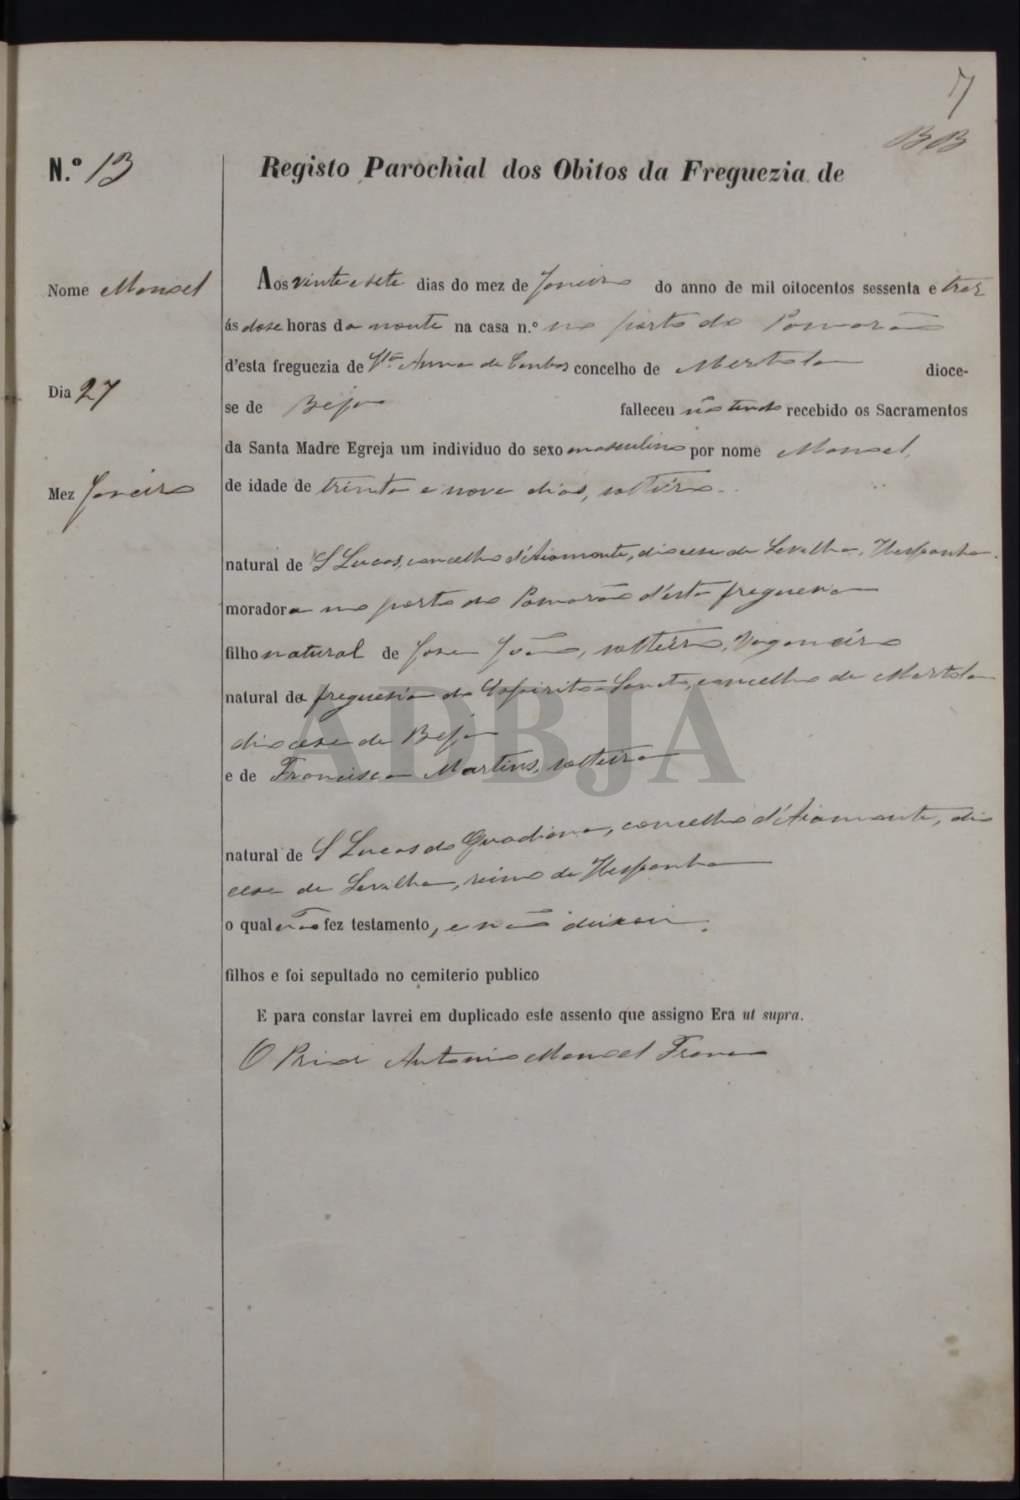 7
BB
N.º 13
Registo Parochial dos Obitos da Freguezia de
Nome Manoel
Dia 27
Mez Janeiro
Aos vinte e sete dias do mez de Janeiro do anno de mil oitocentos sessenta e trez
ás dose horas da noute na casa n.º no porto do Pomarão
d'esta freguezia de Stª Anna de Cambas concelho de Mertola dioce-
se de Beja falleceu não tendo recebido os Sacramentos
da Santa Madre Egreja um individuo do sexo masculino por nome Manoel,
de idade de trinta e nove dias, solteiro.
natural de S Lucas, concelho d'Aiamonte, diocese de Sevilha, Hespanha.
morador no porto do Pomarão d'esta freguesia
filho natural de José João, solteiro,
natural da freguesia do Espirito Santo, concelho de Mertola
diocese de Beja
e de Francisca Martins, solteira
natural de S Lucas do Guadiana, concelho d'Aiamonte, dio
cese de Sevilha, reino de Hespanha
o qual não fez testamento, e não deixou.
filhos e foi sepultado no cemiterio publico
E para constar lavrei em duplicado este assento que assigno Era ut supra.
O Prior Antonio Manoel Franco
ADBJA